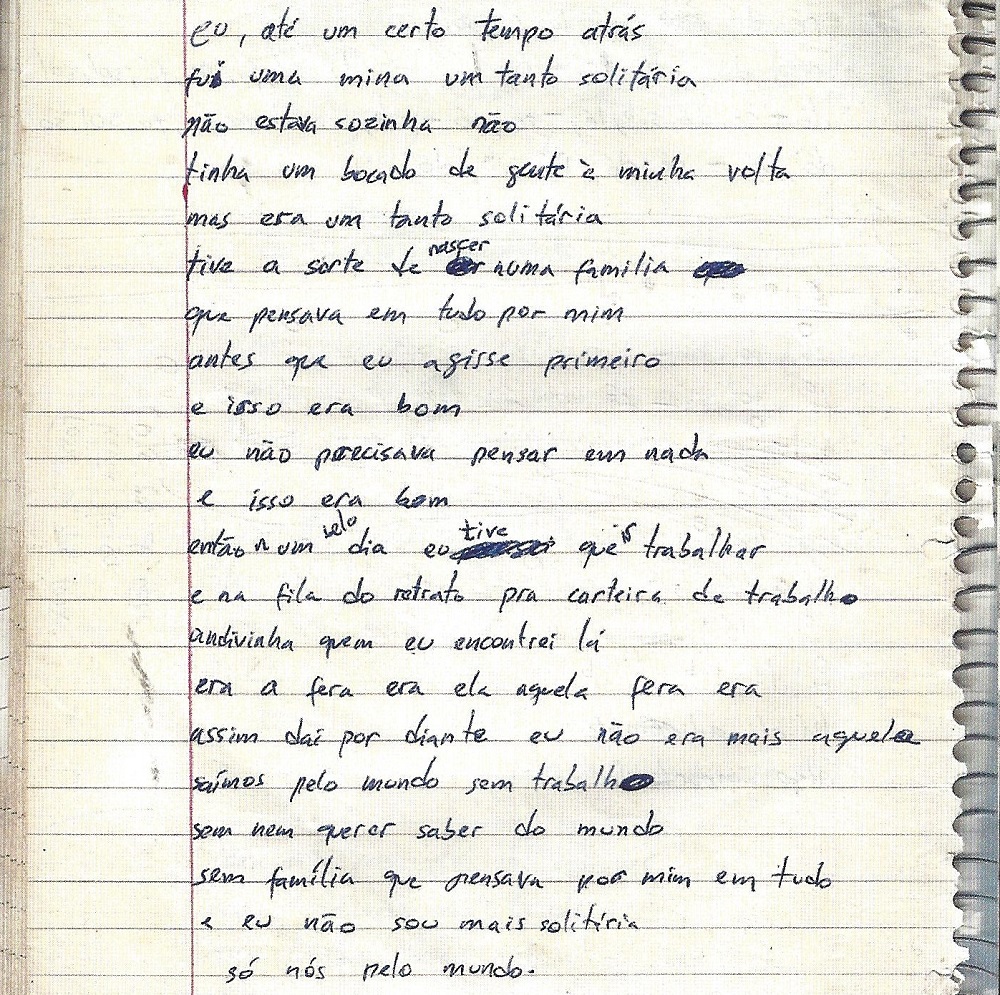 eu, até um certo tempo atrás
fui uma mina um tanto solitária
não estava sozinha não
tinha um bocado de gente à minha volta
mas era um tanto solitária
tive a sorte de nascer numa família
que pensava em tudo por mim
antes que eu agisse primeiro
e isso era bom
eu não precisava pensar em nada
e isso era bom
então num belo dia eu tive que ir trabalhar
e na fila do retrato pra carteira de trabalho
andivinha quem eu encontrei lá
era a fera era ela aquela fera era
assim daí por diante eu não era mais aquela
saímos pelo mundo sem trabalho
sem nem querer saber do mundo
sem família que pensava por mim em tudo
e eu não sou mais solitária
só nós pelo mundo.